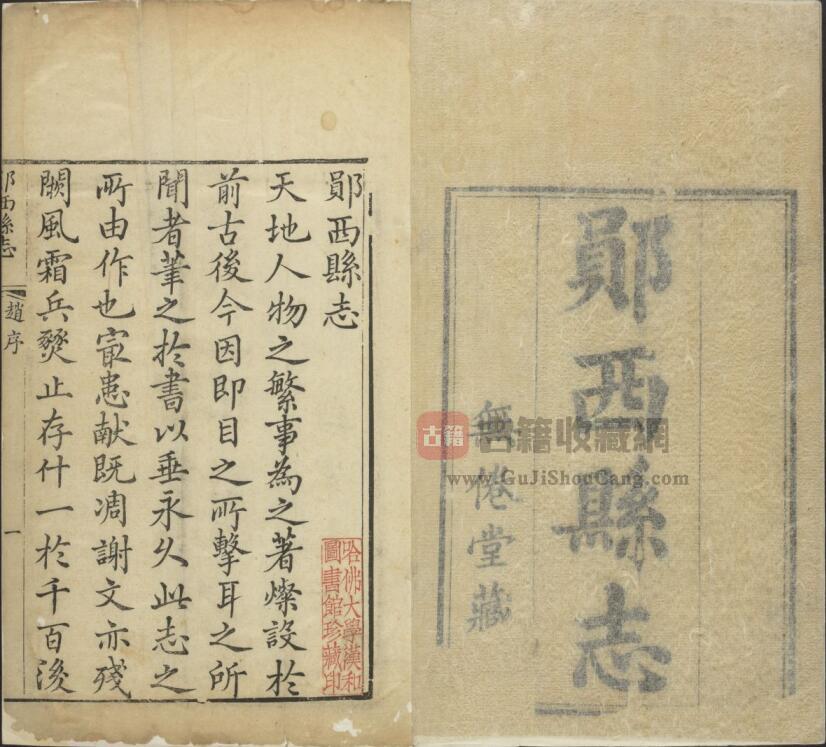 鄖西縣志
無倦堂藏
鄖西縣志
天地人物之繁事為之著燦設於
前古後今因即目之所擊耳之所
聞者筆之於書以垂永久此志之
所由作也寇患献既凋謝文亦殘
闕風霜兵燹止存什一於千百後
鄖西縣志
趙序
一
哈佛大學漢和
圖書館珍藏印
古籍
古籍收藏網
www.GuJiShouCang.com